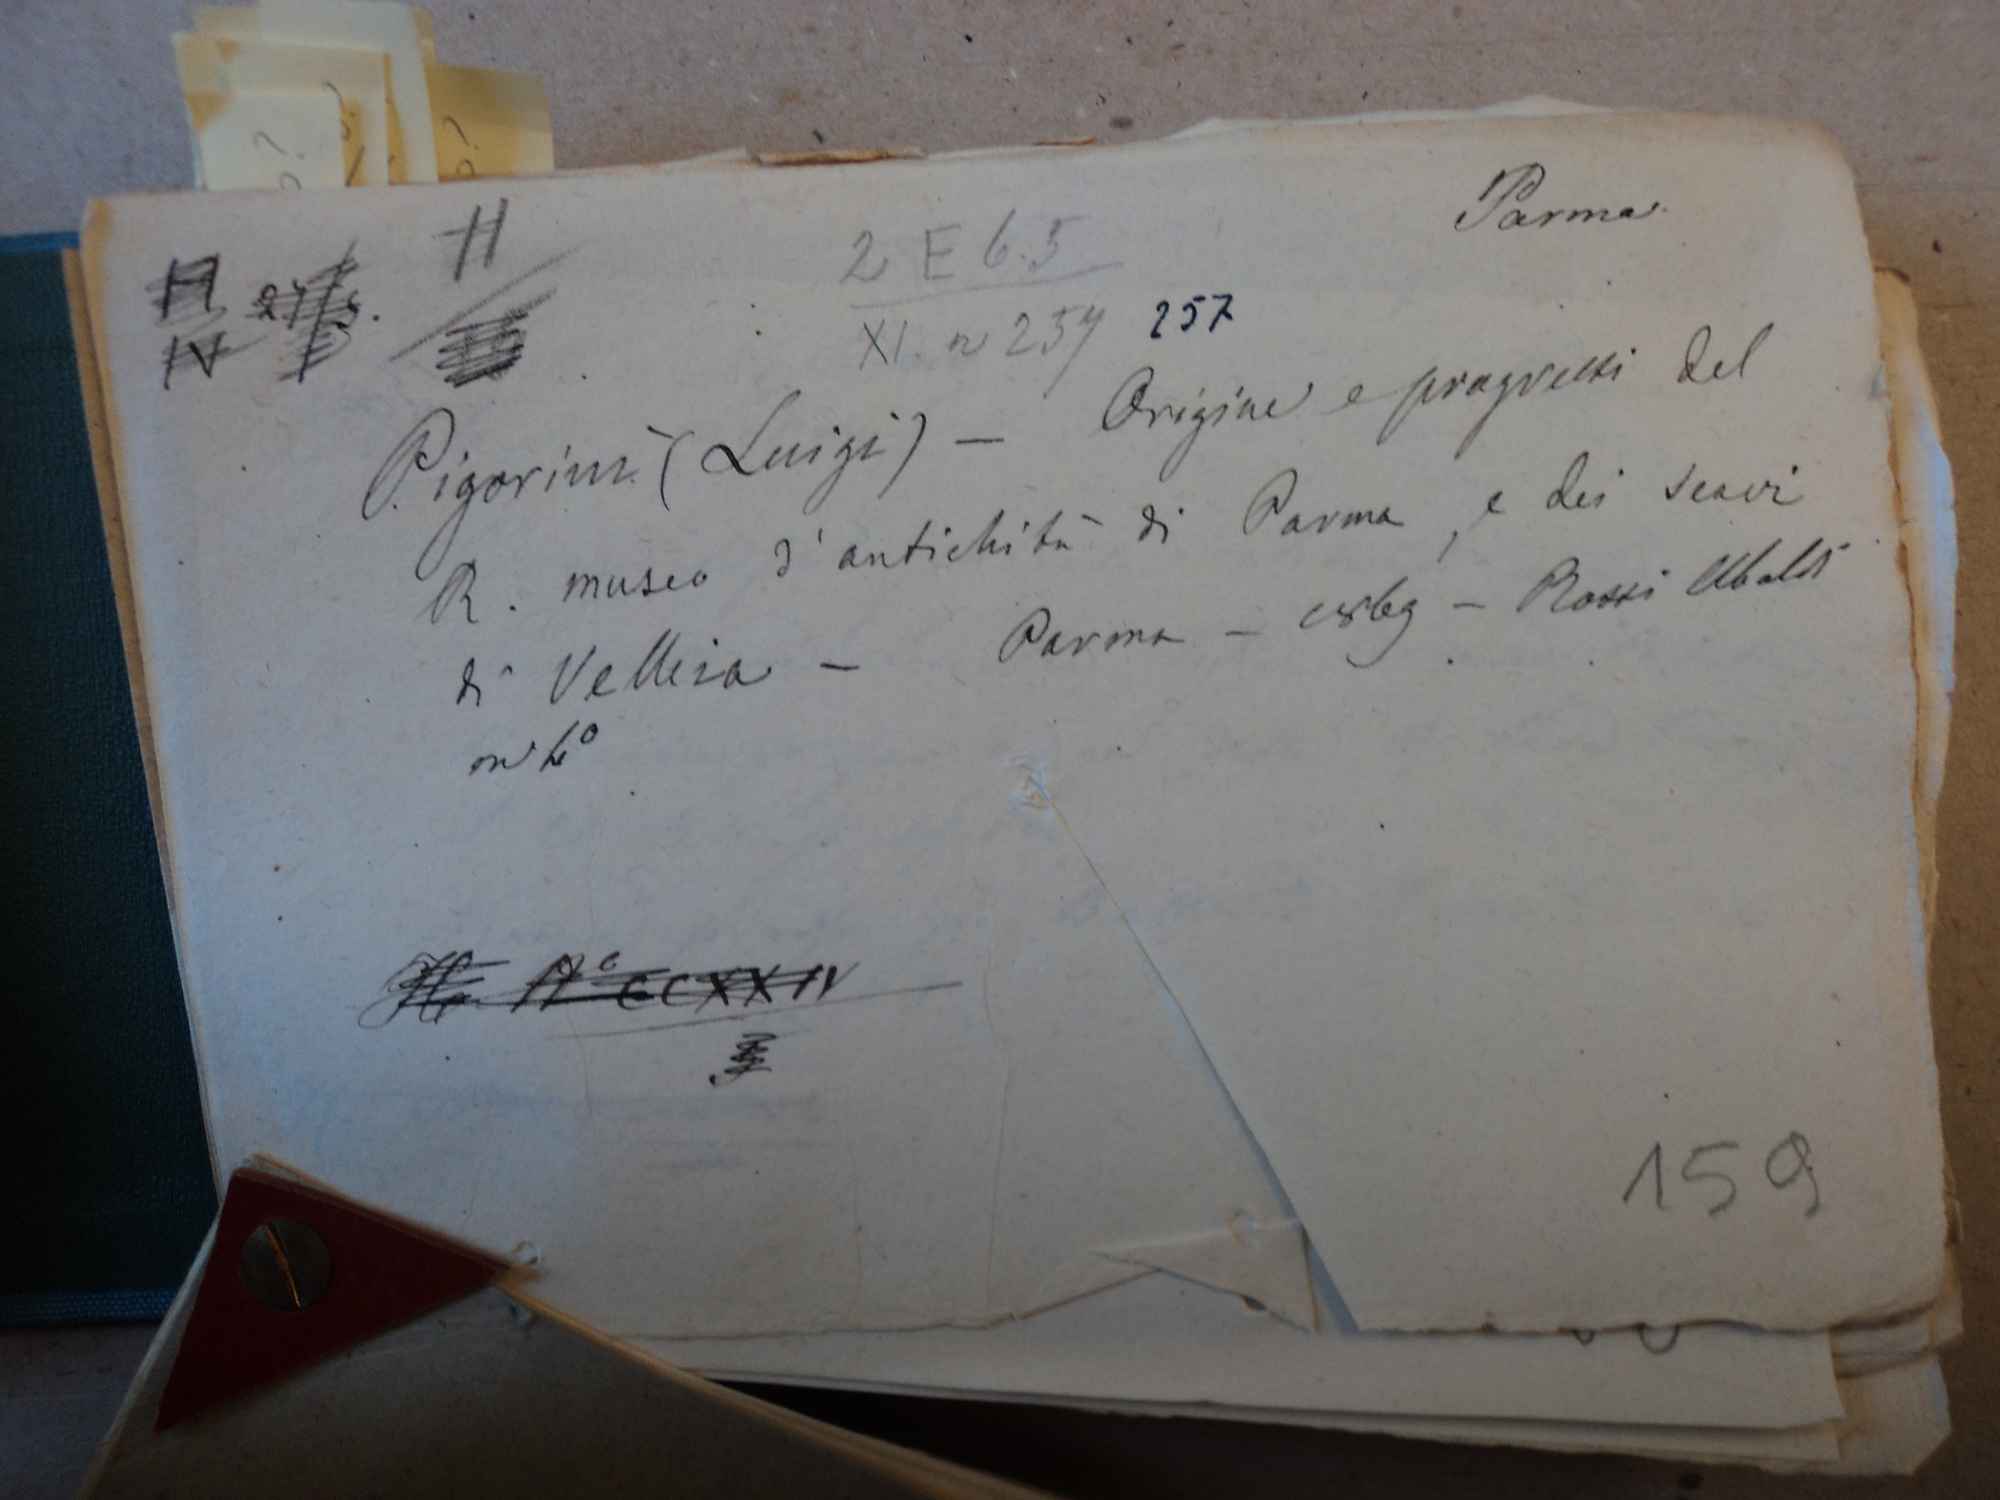 Parma
H
2 E 6.5
XI. n 257 257
Pigorini (Luigi) — Origine e progressi del
R. museo d'antichità di Parma, e dei scavi
di Velleia — Parma — 1869 — Rossi Ubaldi
in 4°
CCXXIV
159